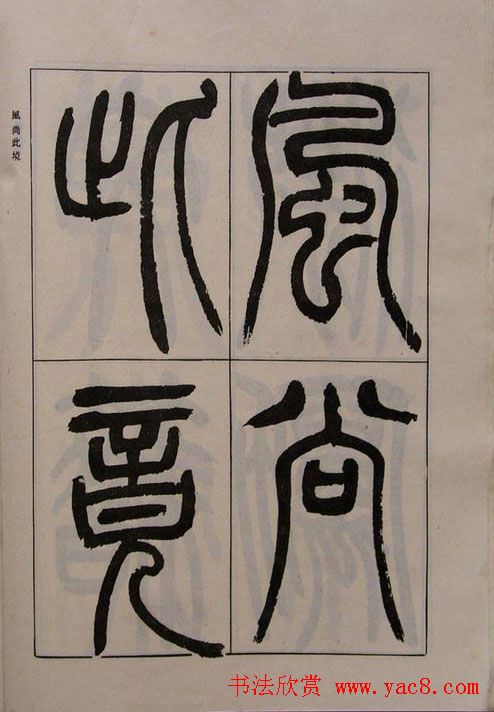 風尚
此竟
風尚此境
书法欣赏 www.yac8.com